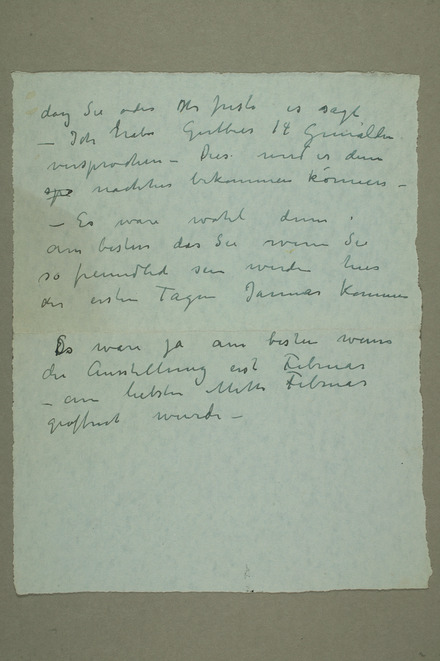 das Sie oder es sagt
— Ich habe 14
versprochen — Dies wird es dann
nachher bekommen können —
— Es ware wohl dann
am besten das Sie wenn Sie
so freundlich sein wurden hier
die ersten Tagen Januar kommen
Es ware ja am besten wenn
die Ausstellung erst Februar
— am liebsten Mitte Februar
geoffnet wurde —